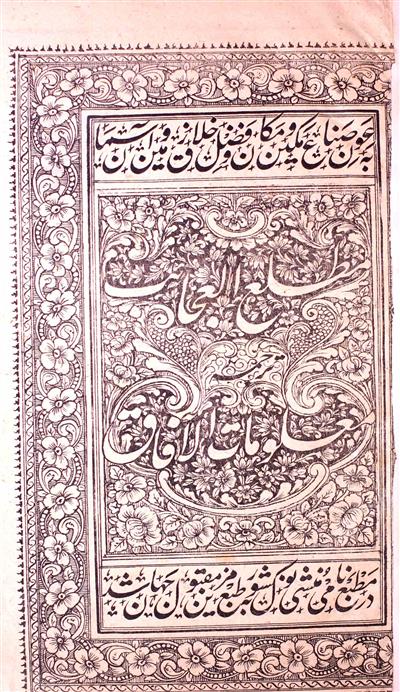 بعون صناع مکین و مکان و فضل خلاق زمین و آسمان
مطلع العجائب
ترجمہ
معلومات الآفاق
در مطبع نامی منشی نولکشور طبع مزین مقبول جہان شد